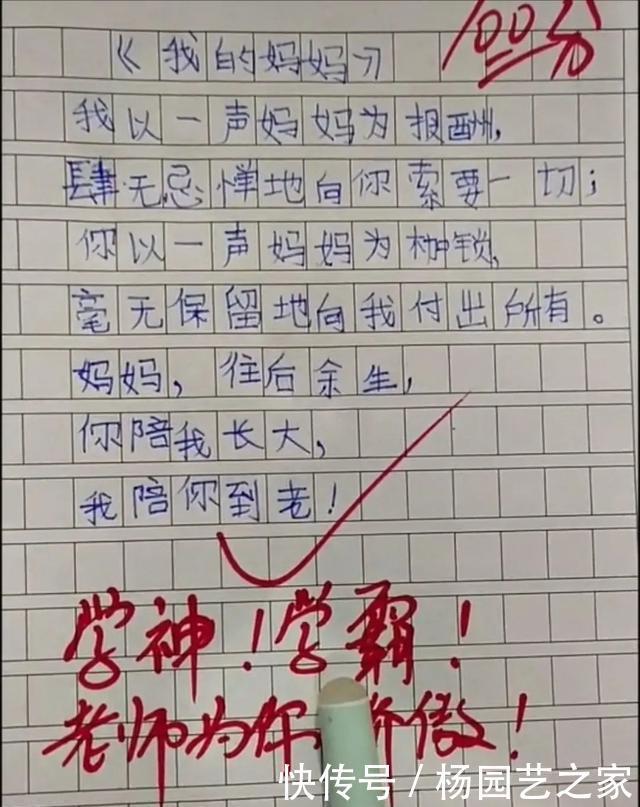 100分
《我的妈妈》
我以一声妈妈为报酬,
肆无忌惮地向你索要一切;
你以一声妈妈为枷锁,
毫无保留地向我付出所有。
妈妈，往后余生,
你陪我长大,
我陪你到老!
学神!学霸!
老师为你 傲!
快传号/杨园艺之家